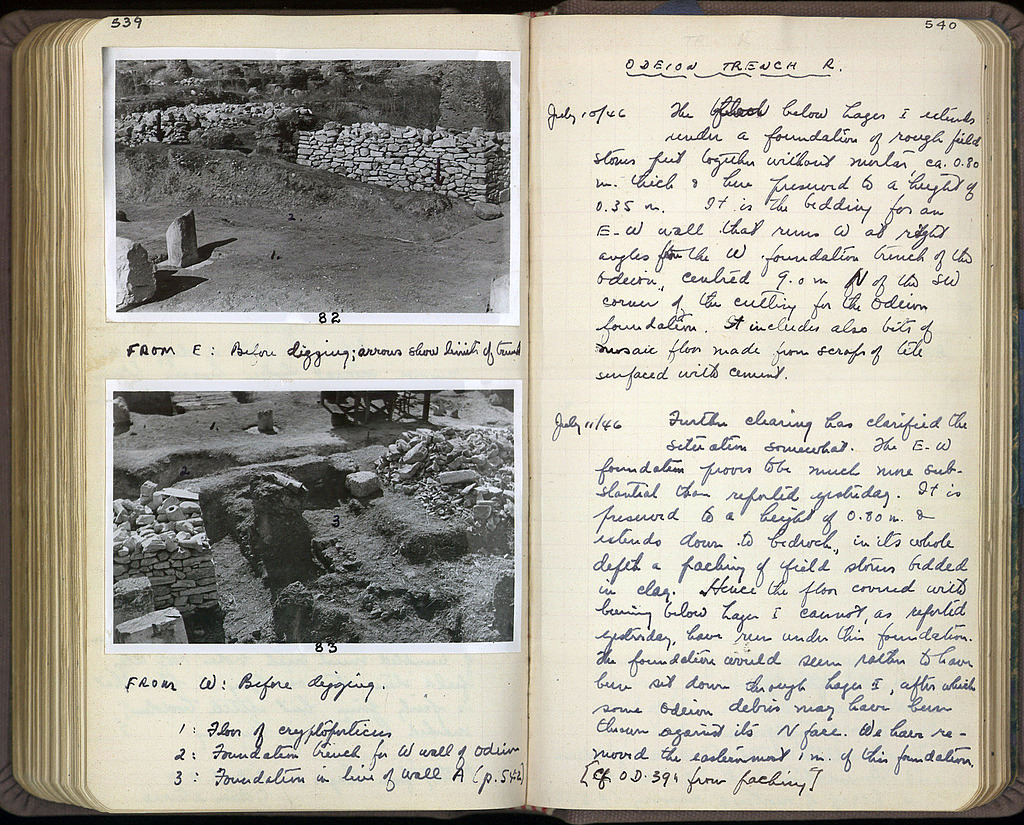 539
82
FROM E: Before digging; arrows show limits of trench
83
FROM W: Before digging.
1: Floor of cryptoporticus
2: Foundation trench for W wall of Odeion
3: Foundation in line of wall A (p. 542)
540
ODEION TRENCH R.
July 10/46 The below Layer I extends
under a foundation of rough field
stones put together without mortar, ca. 0.80
m. thick & here preserved to a height of
0.35 m. It is the bedding for an
E-W wall that runs W at right
angles the W. foundation trench of the
Odeion, centred 9.0 m N of the SW
corner of the cutting for the Odeion
foundation. It includes also bits of
mosaic floor made from scraps of tile
surfaced with cement.
July 11/46 Further clearing has clarified the
situation somewhat. The E-W
foundation proves to be much more sub-
stantial than reported yesterday. It is
preserved to a height of 0.80 m. &
extends down to bedrock, in its whole
depth a packing of field stones bedded
in clay. Hence the floor covered with
burning below Layer I cannot, as reported
yesterday, have run under this foundation.
The foundation would seem rather to have
been set down through Layer I, after which
some Odeion debris may have been
thrown against its N face. We have re-
moved the easternmost 1 m. of this foundation.
[Cf. OD. 394 from packing]